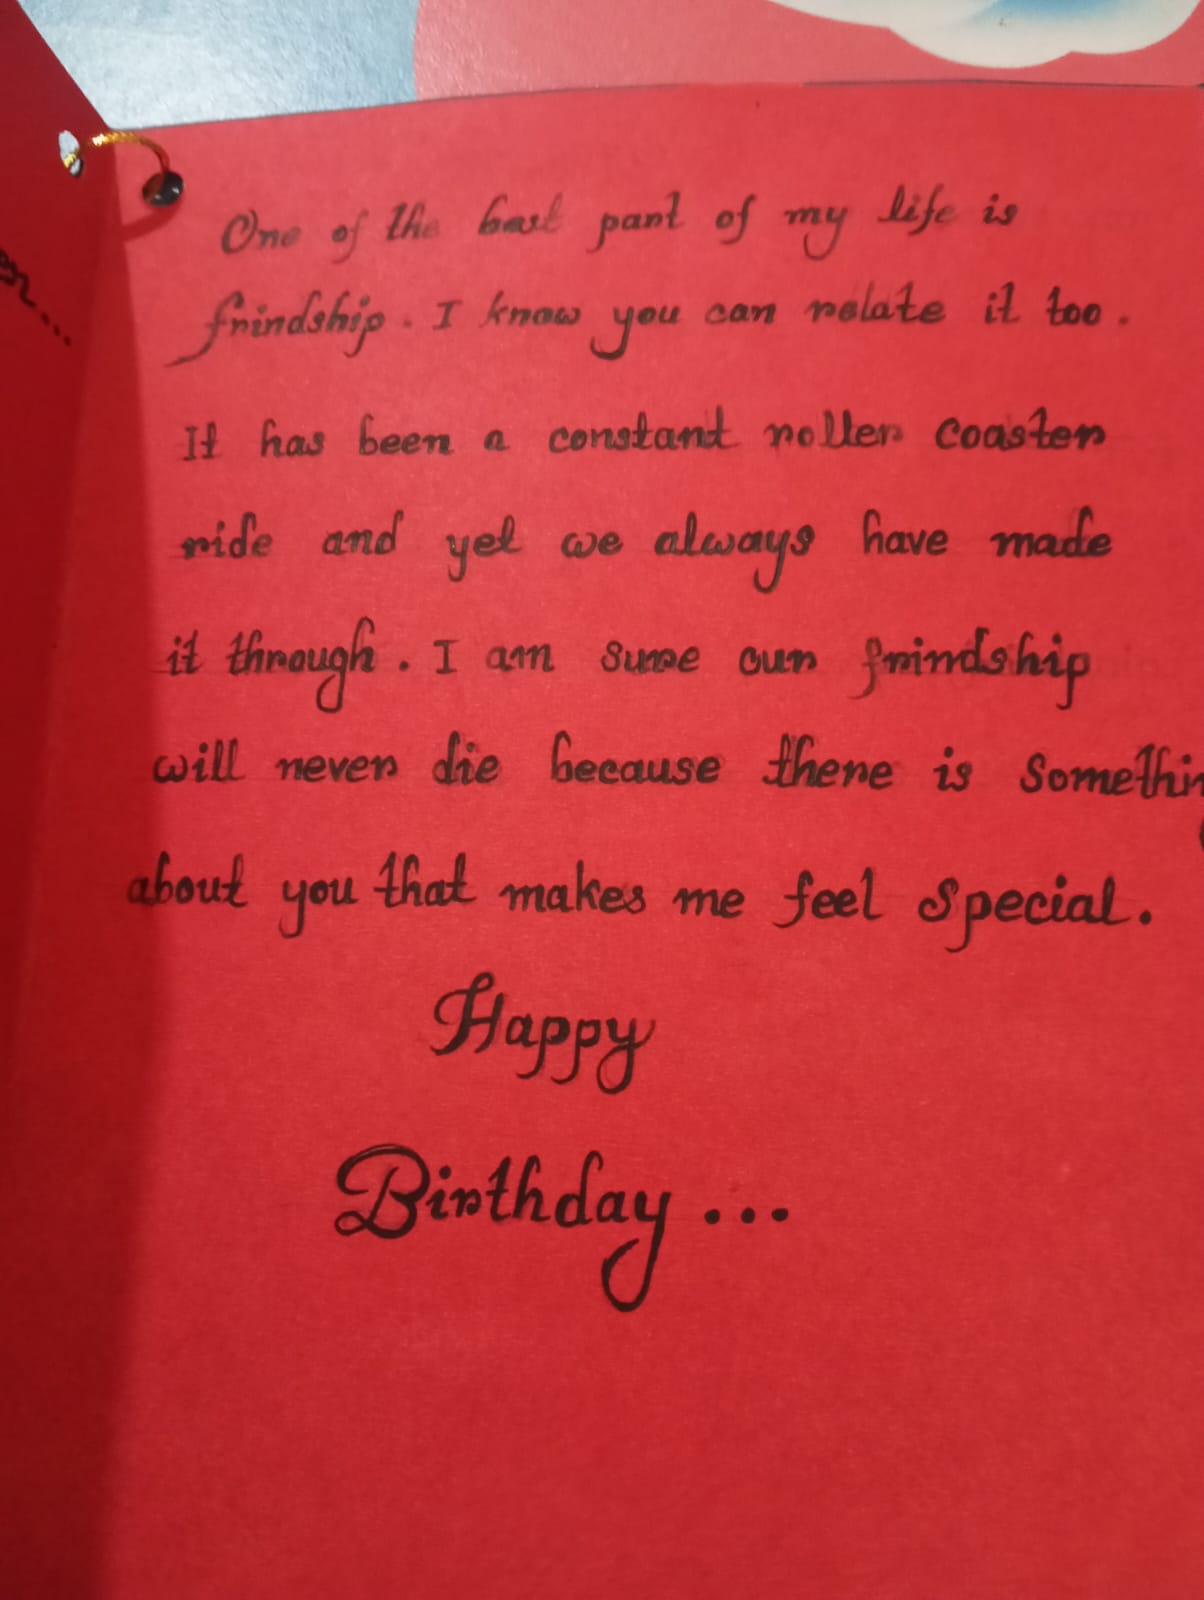 One of the best part of my life is
frindship. I know you can relate it too.
It has been a constant roller coaster
ride and yet we always have made
it through. I am sure our frindship
will never die because there is somethin
about you that makes me feel special.
Happy
Birthday...